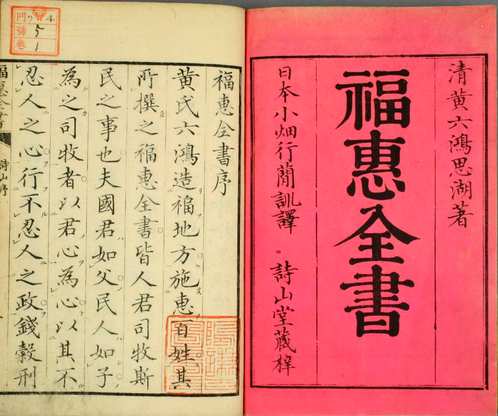 清黄六鴻思湖著
福惠全書
日本小畑行蕳訓譯 詩山堂蔵梓
福惠全書序
黄氏六鴻造福地方施惠百姓其
所撰之福惠全書皆人君司牧斯
民之事也夫國君如父民人如子
為之司牧者以君心為心以其不
忍人之心行不忍人之政錢穀刑